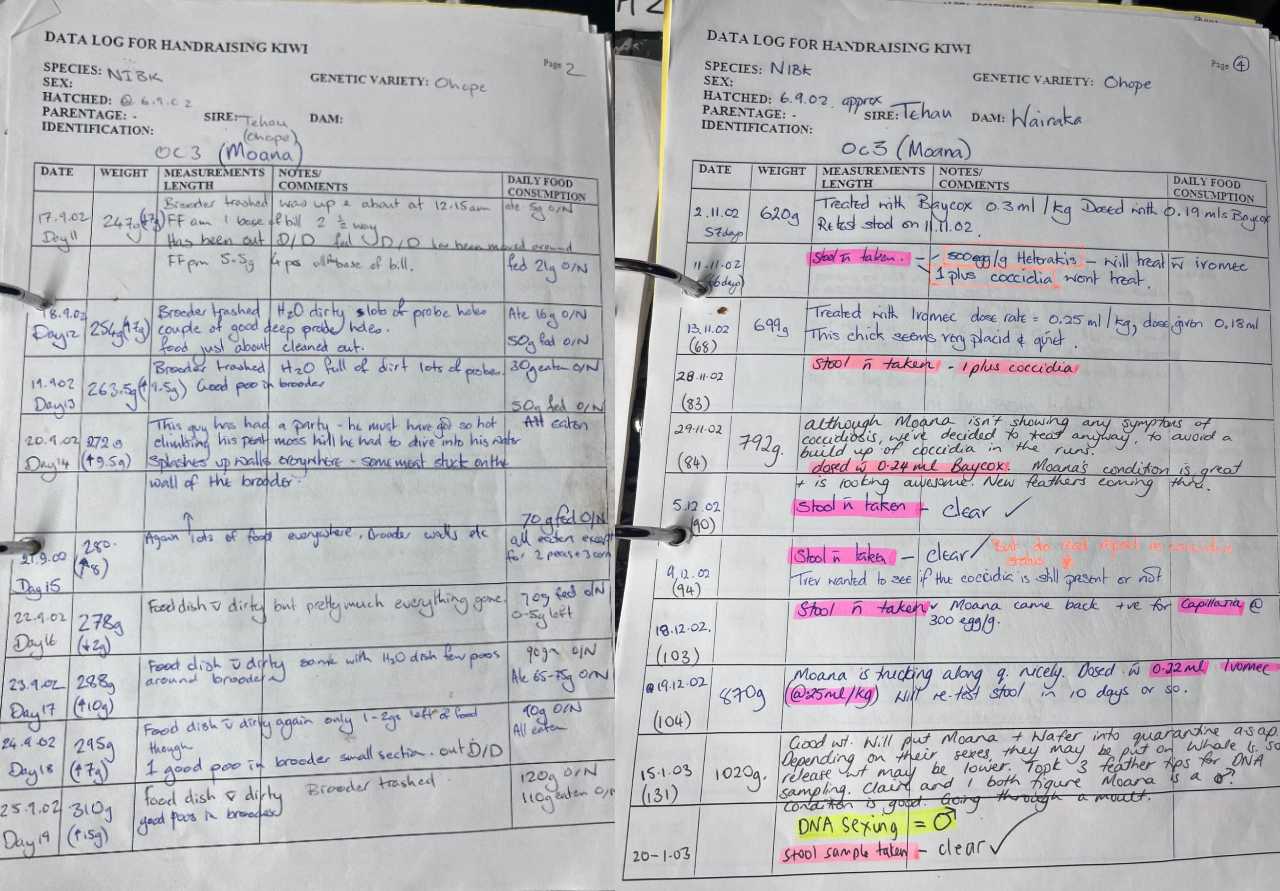 DATA LOG FOR HANDRAISING KIWI
Page 2
SPECIES: NIBK
GENETIC VARIETY: Ohope
SEX:
HATCHED: @ 6.9.02
PARENTAGE: -
SIRE: Tehau
DAM:
(Ohope)
IDENTIFICATION:
OC3 (Moana)
DATE
WEIGHT
MEASUREMENTS
LENGTH
NOTES/
COMMENTS
DAILY FOOD
CONSUMPTION
17.9.02
Day 11
247g (↑7g)
Brooder trashed was up & about at 12.15am
FF am 1 base of bill 2 ½ way
Has been out D/D fed D/D has been moved around
Ate 5g O/N
FF pm 5.5g 4 pos base of bill.
fed 21g O/N
18.9.02
Day 12
254g (↑7g)
Brooder trashed H2O dirty slob of probe holes
couple of good deep probe holes.
food just about cleaned out.
Ate 16g O/N
50g fed O/N
19.9.02
Day 13
263.5g (↑9.5g)
Brooder trashed H2O full of dirt lots of probes
Good poo in brooder
30g eaten O/N
50g fed O/N
20.9.02
Day 14
272g
(↑9.5g)
This guy has had a party - he must have got so hot
climbing his peat moss hill he had to dive into his water
Splashes up walls everywhere - some meat stuck on the
wall of the brooder.
All eaten
70g fed O/N
21.9.02
Day 15
280.
(↑8)
Again lots of food everywhere, brooder walls etc
all eaten except
for 2 peas + 3 corn
22.9.02
Day 16
278g
(↓2g)
Food dish v dirty but pretty much everything gone.
70g fed O/N
0-5g left
23.9.02
Day 17
288g
(↑10g)
Food dish v dirty same with H2O dish few poos
around brooder
90g O/N
Ate 65-75g O/N
24.9.02
Day 18
295g
(↑7g)
Food dish v dirty again only 1-2gs left of food
though
1 good poo in brooder small section. out D/D
90g O/N
All eaten
25.9.02
Day 19
310g
(↑15g)
food dish v dirty Brooder trashed.
good poos in brooder
120g O/N
110g eaten O/N
DATA LOG FOR HANDRAISING KIWI
Page 4
SPECIES: NIBK
GENETIC VARIETY: Ohope
SEX:
HATCHED: 6.9.02. approx
PARENTAGE: -
SIRE: Tehau
DAM: Wairaka
IDENTIFICATION:
OC3 (Moana)
DATE
WEIGHT
MEASUREMENTS
LENGTH
NOTES/
COMMENTS
DAILY FOOD
CONSUMPTION
2.11.02
57 days
620g
Treated with Baycox 0.3ml/kg Dosed with 0.19mls Baycox
Retest stool on 11.11.02.
11-11-02
(66 days)
Stool n̄ taken. - 500 egg/g Heterakis - will treat w̄ ivomec
1 plus coccidia wont treat.
13.11.02
(68)
699g
Treated with Ivomec dose rate = 0.25ml/kg, dose given 0.18ml
This chick seems very placid & quiet.
28.11.02
(83)
Stool n̄ taken - 1 plus coccidia
29.11.02
(84)
792g.
although Moana isn't showing any symptoms of
coccidiosis, we've decided to treat anyway, to avoid a
build up of coccidia in the runs.
dosed w̄ 0.24ml Baycox. Moana's condition is great
+ is looking awesome. New feathers coming thru.
5.12.02
(90)
Stool n̄ taken - clear ✓
9.12.02
(94)
Stool n̄ taken - clear ✓ But do read report re coccidia
status
Trev wanted to see if the coccidia is still present or not
18.12.02.
(103)
Stool n̄ taken Moana came back +ve for Capillaria @
300 egg/g.
19.12.02
(104)
870g
Moana is trucking along q. nicely. Dosed w̄ 0.22ml Ivomec
(@.25ml/kg) Will re-test stool in 10 days or so.
15.1.03
(131)
1020g.
Good wt. Will put Moana + Wafer into quarantine asap.
Depending on their sexes, they may be put on Whale Is. so
release wt may be lower. Took 3 feather tips for DNA
sampling. Claire and I both figure Moana is a ♂.
condition is good. Going through a moult.
DNA Sexing = ♂
20-1-03
Stool sample taken - clear ✓